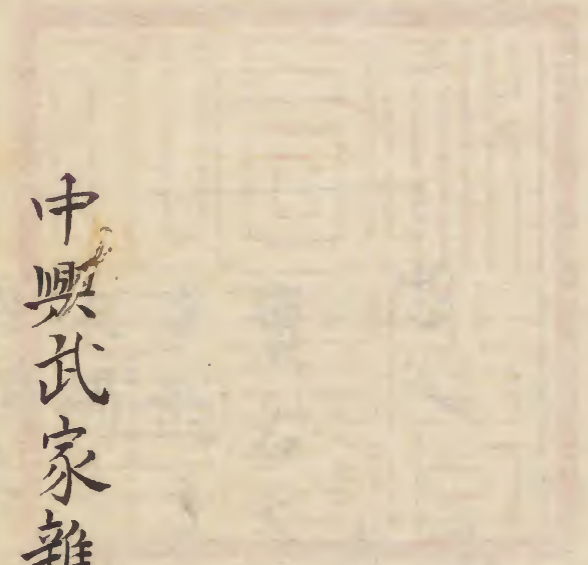 中興武家雜